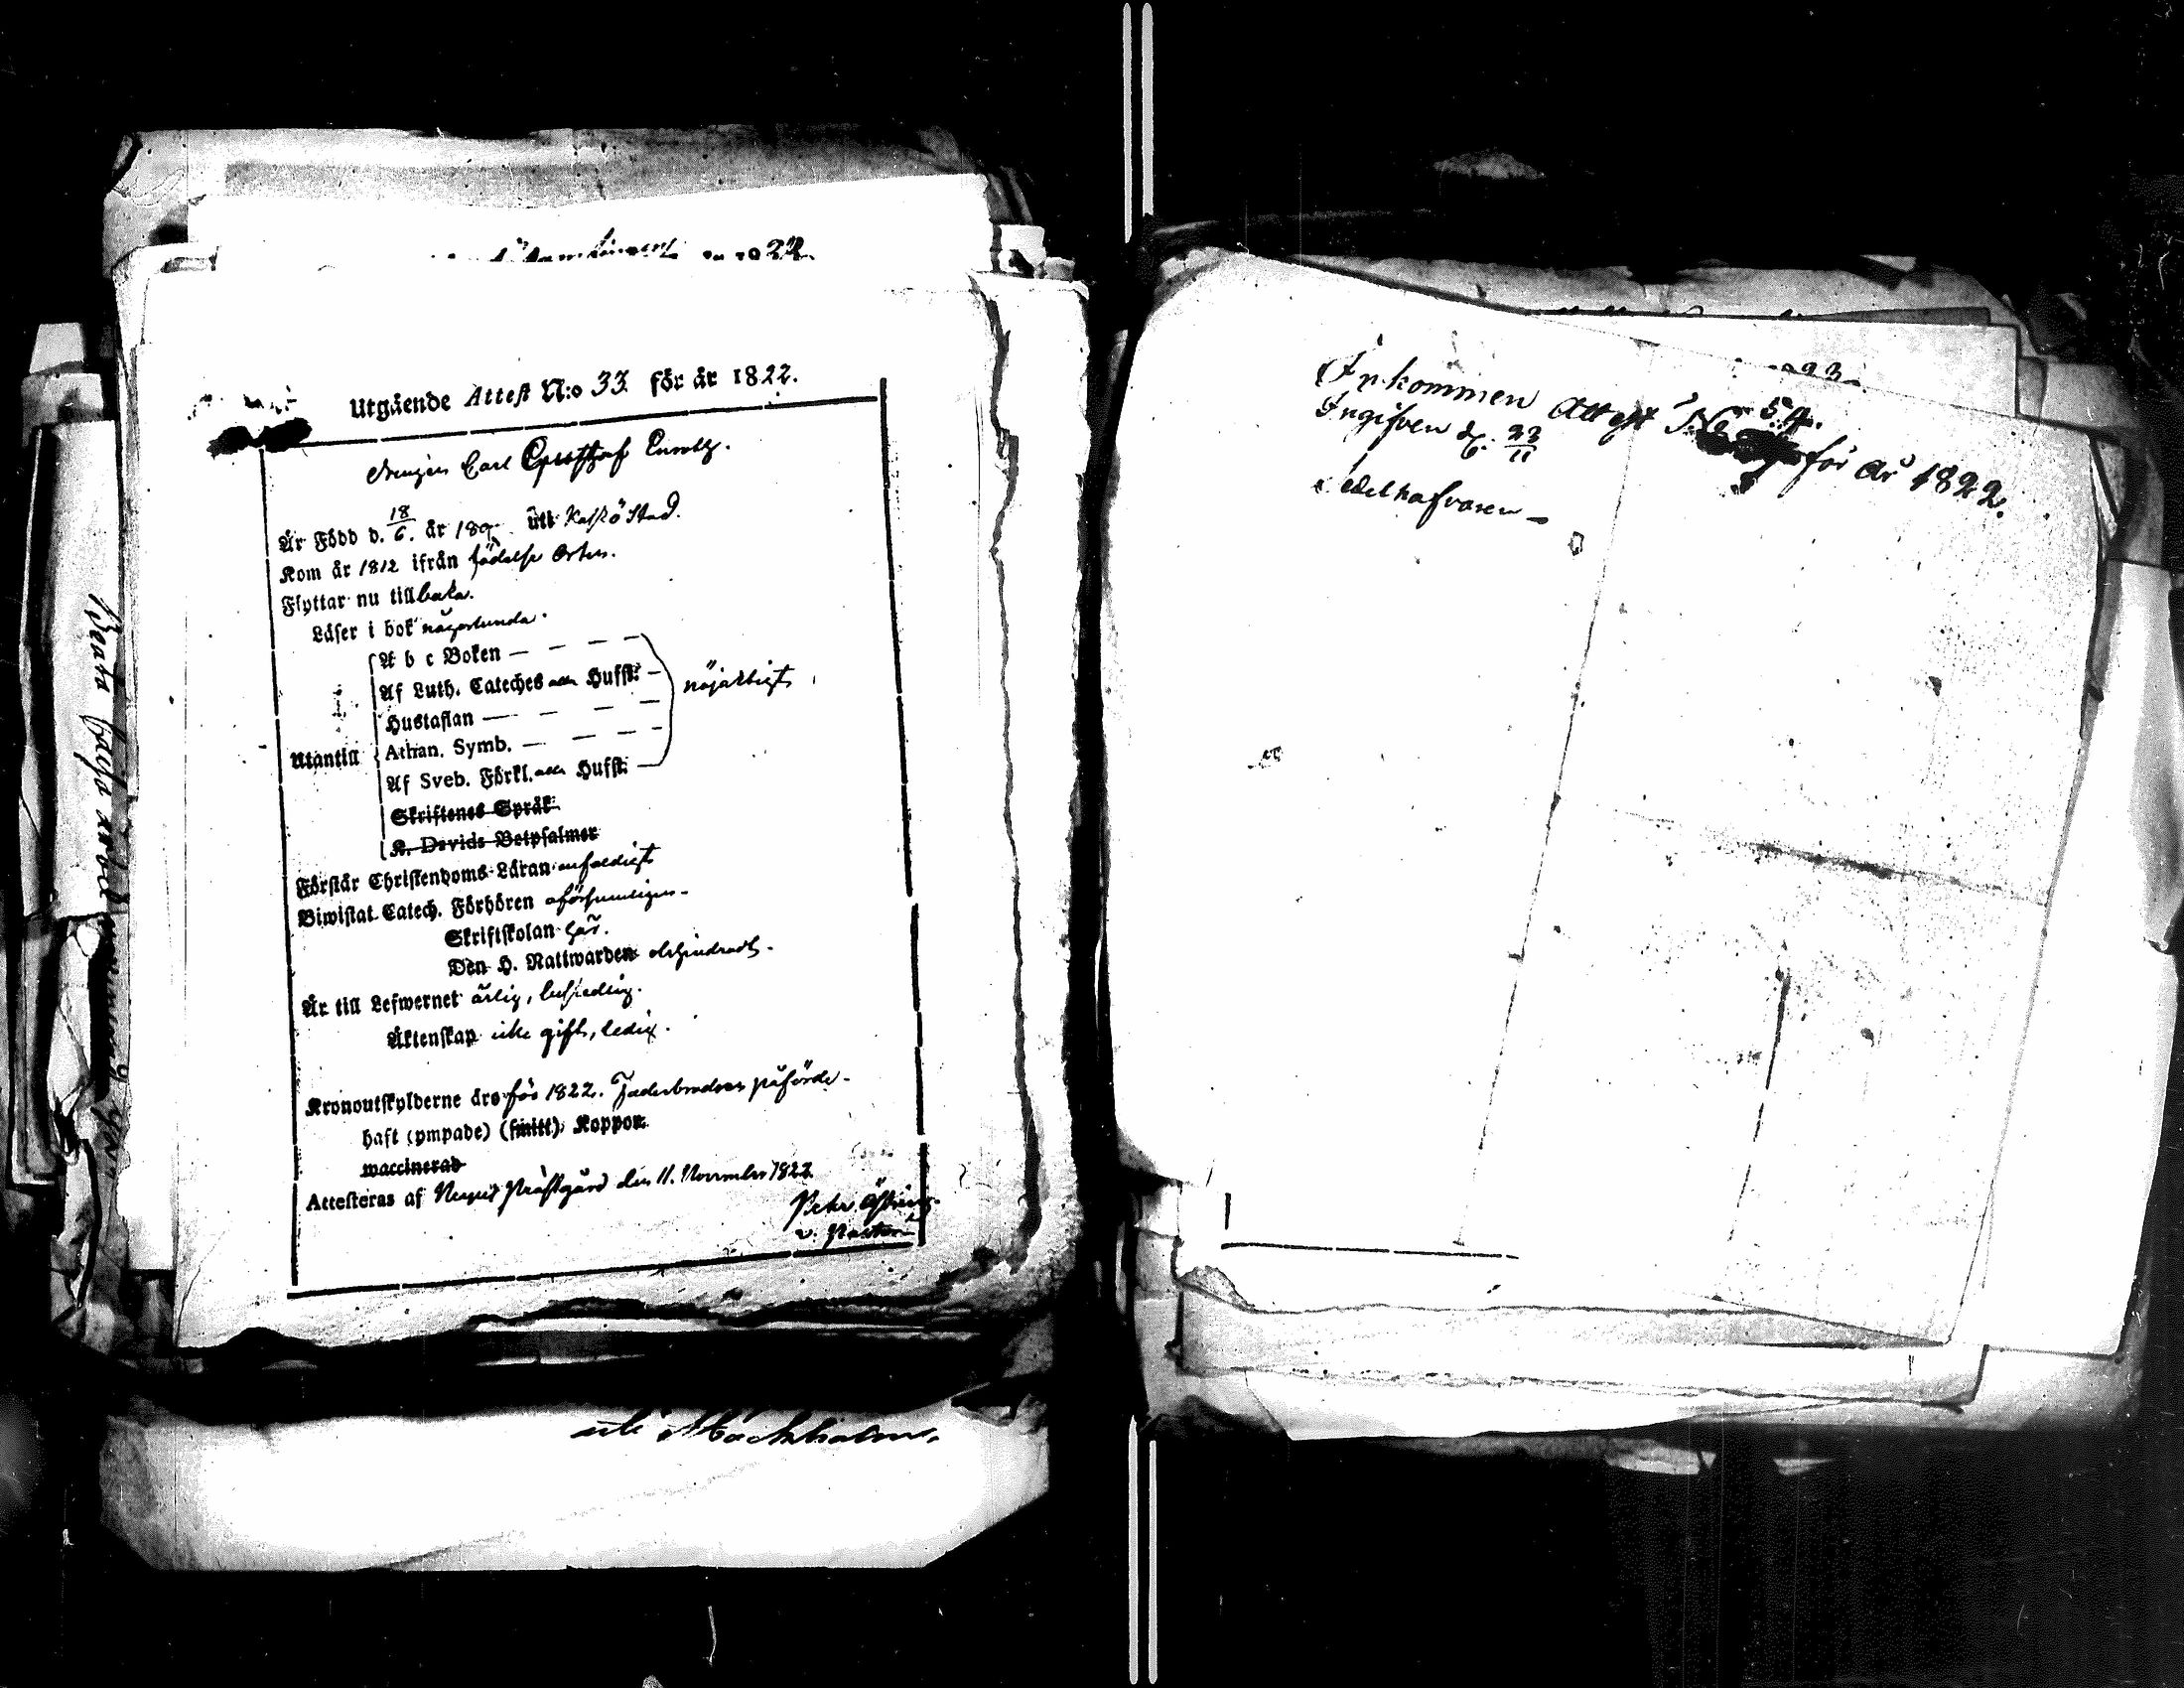 Utgående Attest N:o 33 för år 1822.
Drengen Carl Gusthaf
Är Född d. 18/6. år 180 uti Kaskö Stad.
Kom år 1812 ifrån födelse Orten.
Flyttar nu tillbaka.
Läser i bok någorlunda.
Utantill
A b c Boken — — — —
Af Luth. Cateches Hufst: —
Hustaflan — — — —
Athan. Symb. — — — —
Af Sveb. Förkl. Hufst: —
nöjaktigt
Skriftenes Språk
K. Davids Betpsalmer
Förstår Christendoms Läran enfaldigt
Biwistat Catech. Förhören oförsumligen.
Skriftskolan här.
Den H. Nattwarden obehindradt.
Är till Lefwernet ärlig, beskedlig.
Äktenskap icke gift, ledig.
Kronoutskylderne äro för 1822. Faderbrodren påförde.
haft (ympade) (smitt) Koppor.
waccinerad
Attesteras af Nerpes Prästgård den 11. November 1822.
Petr.
v. Pastor
uti Stockholm.
Inkommen Attest N:o 54. för år 1822.
Ingifven d. 23/11